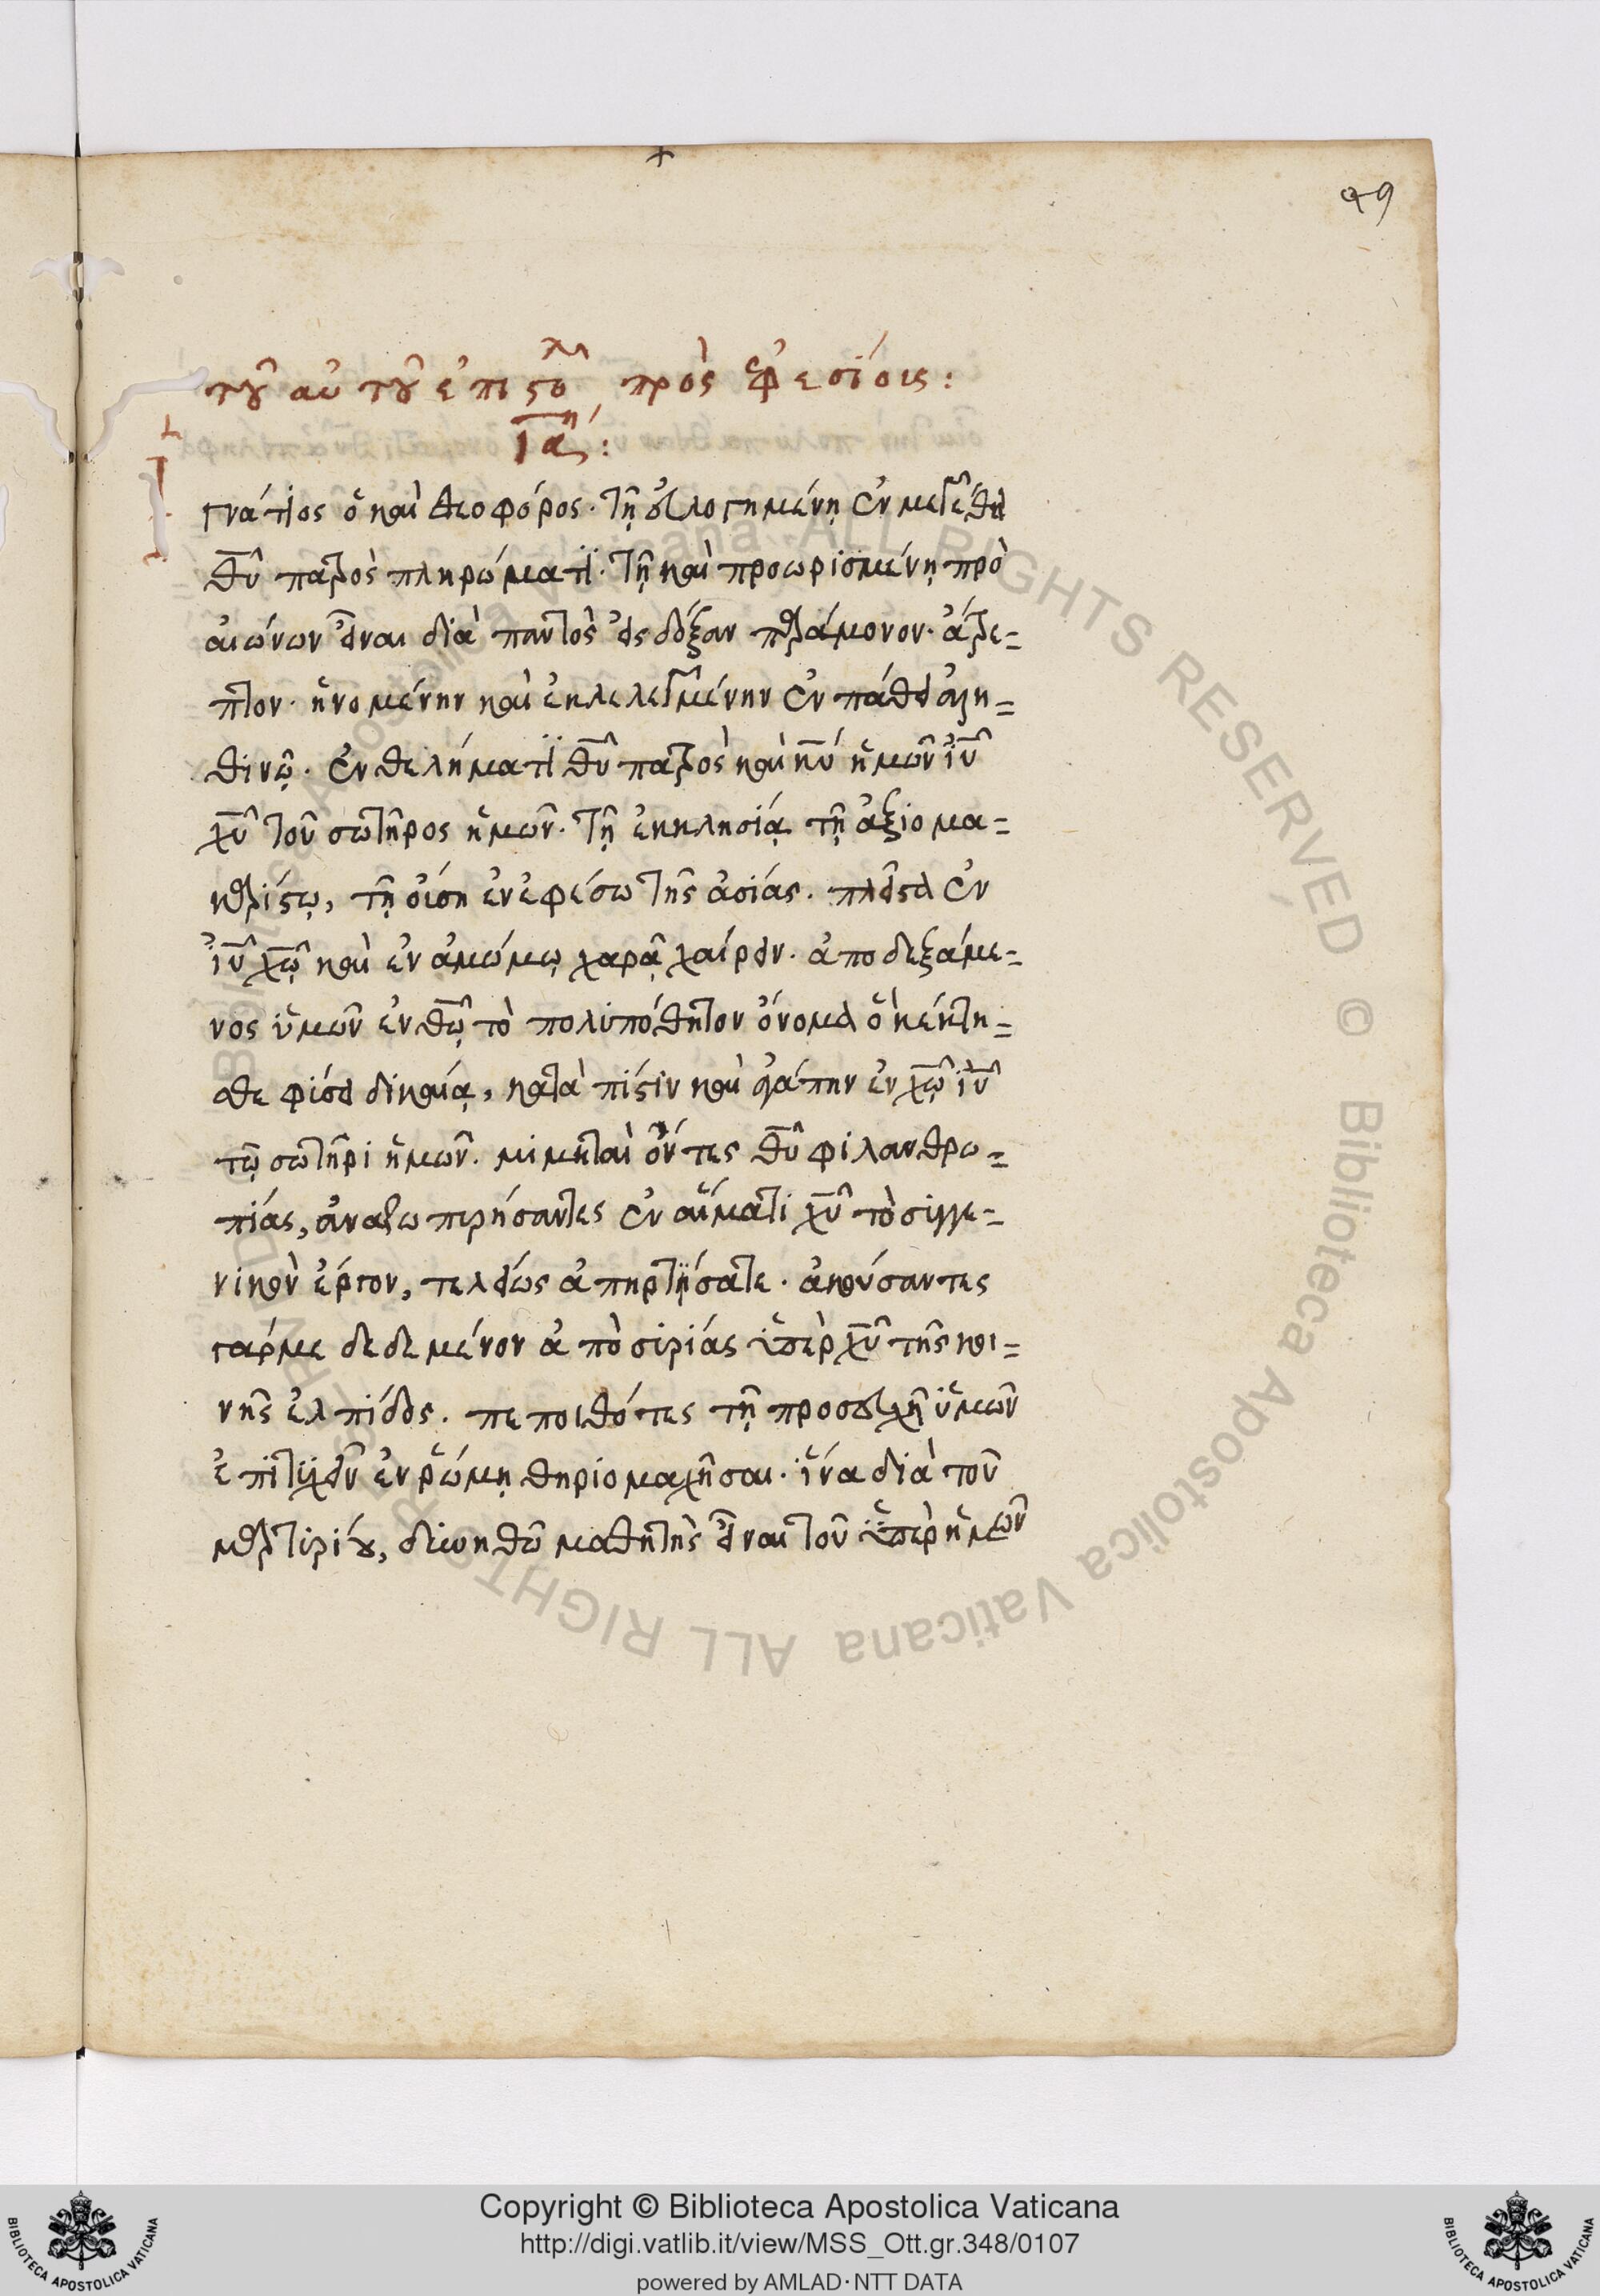 99
τοῦ αὐτοῦ ἐπιστολὴ πρὸς ἐφεσίοις:
ια:
Ιγνάτιος ὁ καὶ θεοφόρος. τῇ εὐλογημένῃ ἐν μεγέθει
θῦ πατρὸς πληρώματι. τῇ καὶ προωρισμένῃ πρὸ
αἰώνων εἶναι διὰ παντὸς εἰς δόξαν παράμονον. ἄτρε=
πτον. ἡνομένην καὶ ἐκλελεγμένην ἐν πάθει ἀλη=
θινῷ. ἐν θελήματι θῦ πατρὸς καὶ κυ ἡμῶν ἰῦ
χῦ τοῦ σωτῆρος ἡμῶν. τῇ ἐκκλησίᾳ τῇ ἀξιομα=
καρίστῳ, τῇ οὔση ἐν ἐφέσω τῆς ἀσίας. πλεῖστα ἐν
ἰῦ χῶ καὶ ἐν ἀμώμῳ χαρᾷ χαίρειν. ἀποδεξάμε=
νος ὑμῶν ἐν θῶ τὸ πολυπόθητον ὄνομα ὃ κέκτη=
σθε φύσει δικαίᾳ, κατὰ πίστιν καὶ ἀγάπην ἐν χῶ ἰῦ
τῷ σωτῆρι ἡμῶν. μιμηταὶ ὄντες θῦ φιλανθρω=
πίας, ἀναζωπυρήσαντες ἐν αἵματι χῦ τὸ συγγε=
νικὸν ἔργον, τελείως ἀπηρτήσατε. ἀκούσαντες
γάρ με δεδεμένον ἀπὸ συρίας ὑπὲρ χῦ τῆς κοι=
νῆς ἐλπίδος. πεποιθότες τῇ προσευχῇ ὑμῶν
ἐπιτυχεῖν ἐν ῥώμῃ θηριομαχῆσαι. ἵνα διὰ τοῦ
μαρτυρίου, δυνηθῶ μαθητὴς εἶναι τοῦ ὑπὲρ ἡμῶν
Biblioteca Apostolica Vaticana ALL RIGHTS RESERVED © Biblioteca Apostolica Vaticana ALL RIGHTS RESERVED ©
Copyright © Biblioteca Apostolica Vaticana
http://digi.vatlib.it/view/MSS_Ott.gr.348/0107
powered by AMLAD·NTT DATA
BIBLIOTECA APOSTOLICA VATICANA
BIBLIOTECA APOSTOLICA VATICANA